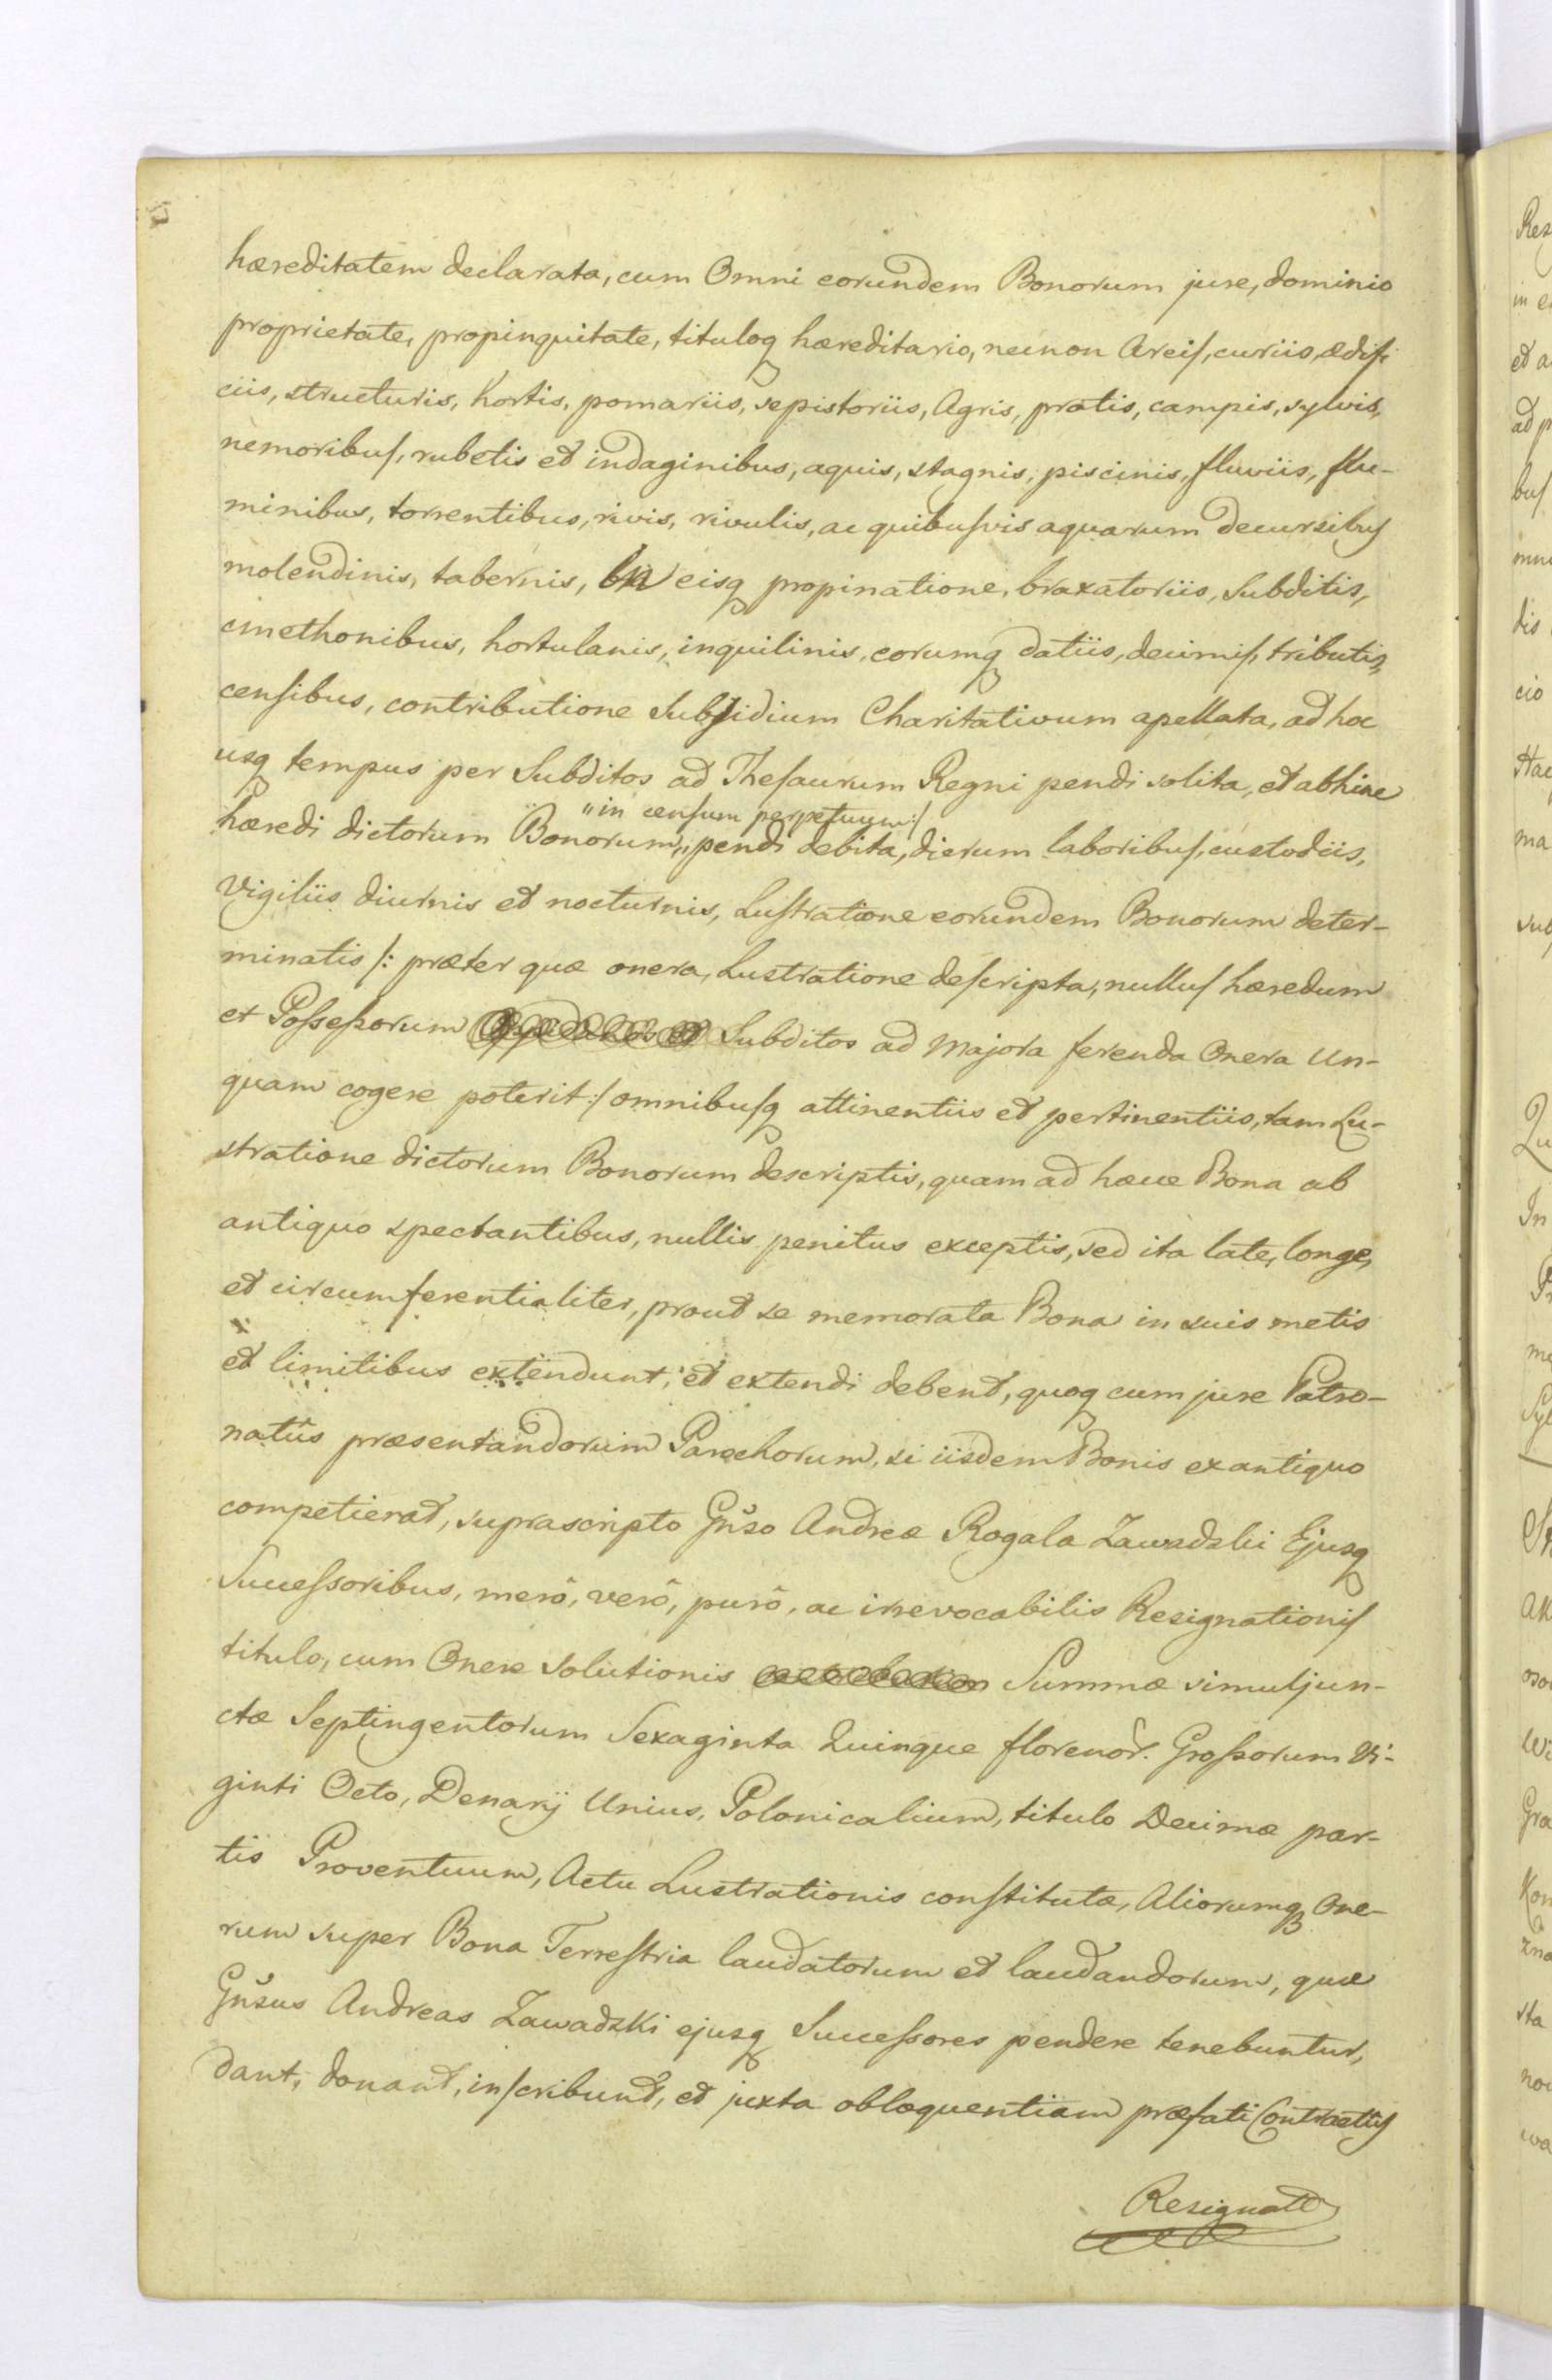 hæreditatem declarata, cum Omni eorundem Bonorum jure, dominio
proprietate, propinquitate, tituloq hæreditario, necnon Areis, curiis, ædifi
ciis, structuris, hortis, pomariis, sepistoriis, Agris, pratis, campis, sylvis,
nemoribus, rubetis et indaginibus, aquis, stagnis, piscinis, fluviis, flu-
minibus, torrentibus, rivis, rivulis, ac quibusvis aquarum decursibus
molendinis, tabernis, eisq propinatione, braxatoriis, Subditis,
cmethonibus, hortulanis, inquilinis, eorumq datiis, decimis, tributis,
censibus, contributione Subsidium Charitativum apellata, ad hoc
usq tempus per Subditos ad Thesaurum Regni pendi solita, et abhinc
"in censum perpetuum:/
hæredi dictorum Bonorum,, pendi debita, dierum laboribus, custodiis,
Vigiliis diurnis et nocturnis, Lustratione eorundem Bonorum deter-
minatis /: præter quæ onera, Lustratione descripta, nullus hæredum
et Possessorum Subditos ad Majora ferenda Onera Un-
quam cogere poterit :/ omnibusq attinentiis et pertinentiis, tam Lu-
stratione dictorum Bonorum descriptis, quam ad hæce Bona ab
antiquo spectantibus, nullis penitus exceptis, sed ita late, longe,
et circumferentialiter, prout se memorata Bona in suis metis
et limitibus extendunt, et extendi debent, quoq cum jure Patro-
natûs præsentandorum Parochorum, si iisdem Bonis ex antiquo
competierat, suprascripto Gñso Andreæ Rogala Zawadzki Ejusq
Successoribus, merô, verô, purô, ac irrevocabilis Resignationis
titulo, cum Onere Solutionis Summæ simul jun-
ctæ Septingentorum Sexaginta Quinque florenor. Grossorum Vi-
ginti Octo, Denarij Unius, Polonicalium, titulo Decimæ par-
tis Proventuum, Actu Lustrationis constitutæ, Aliorumq One-
rum super Bona Terrestria laudatorum et laudandorum, quæ
Gñsus Andreas Zawadzki ejusq Successores pendere tenebuntur,
dant, donant, inscribunt, et juxta obloquentiam præfati Contractus
Resignatt